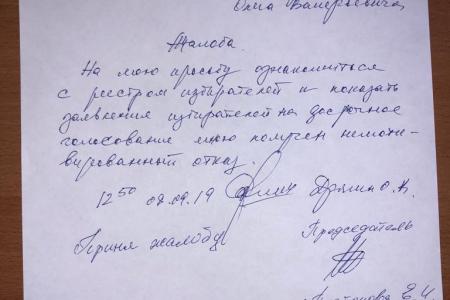 Олега Валерьевича
Жалоба.
На мою просьбу ознакомиться
с реестром избирателей и показать
заявления избирателей на досрочное
голосование мною получен немоти-
вированный отказ.
12 50 08.09.19 О.В.
Приня жалобу
Председатель
Е.Ч.